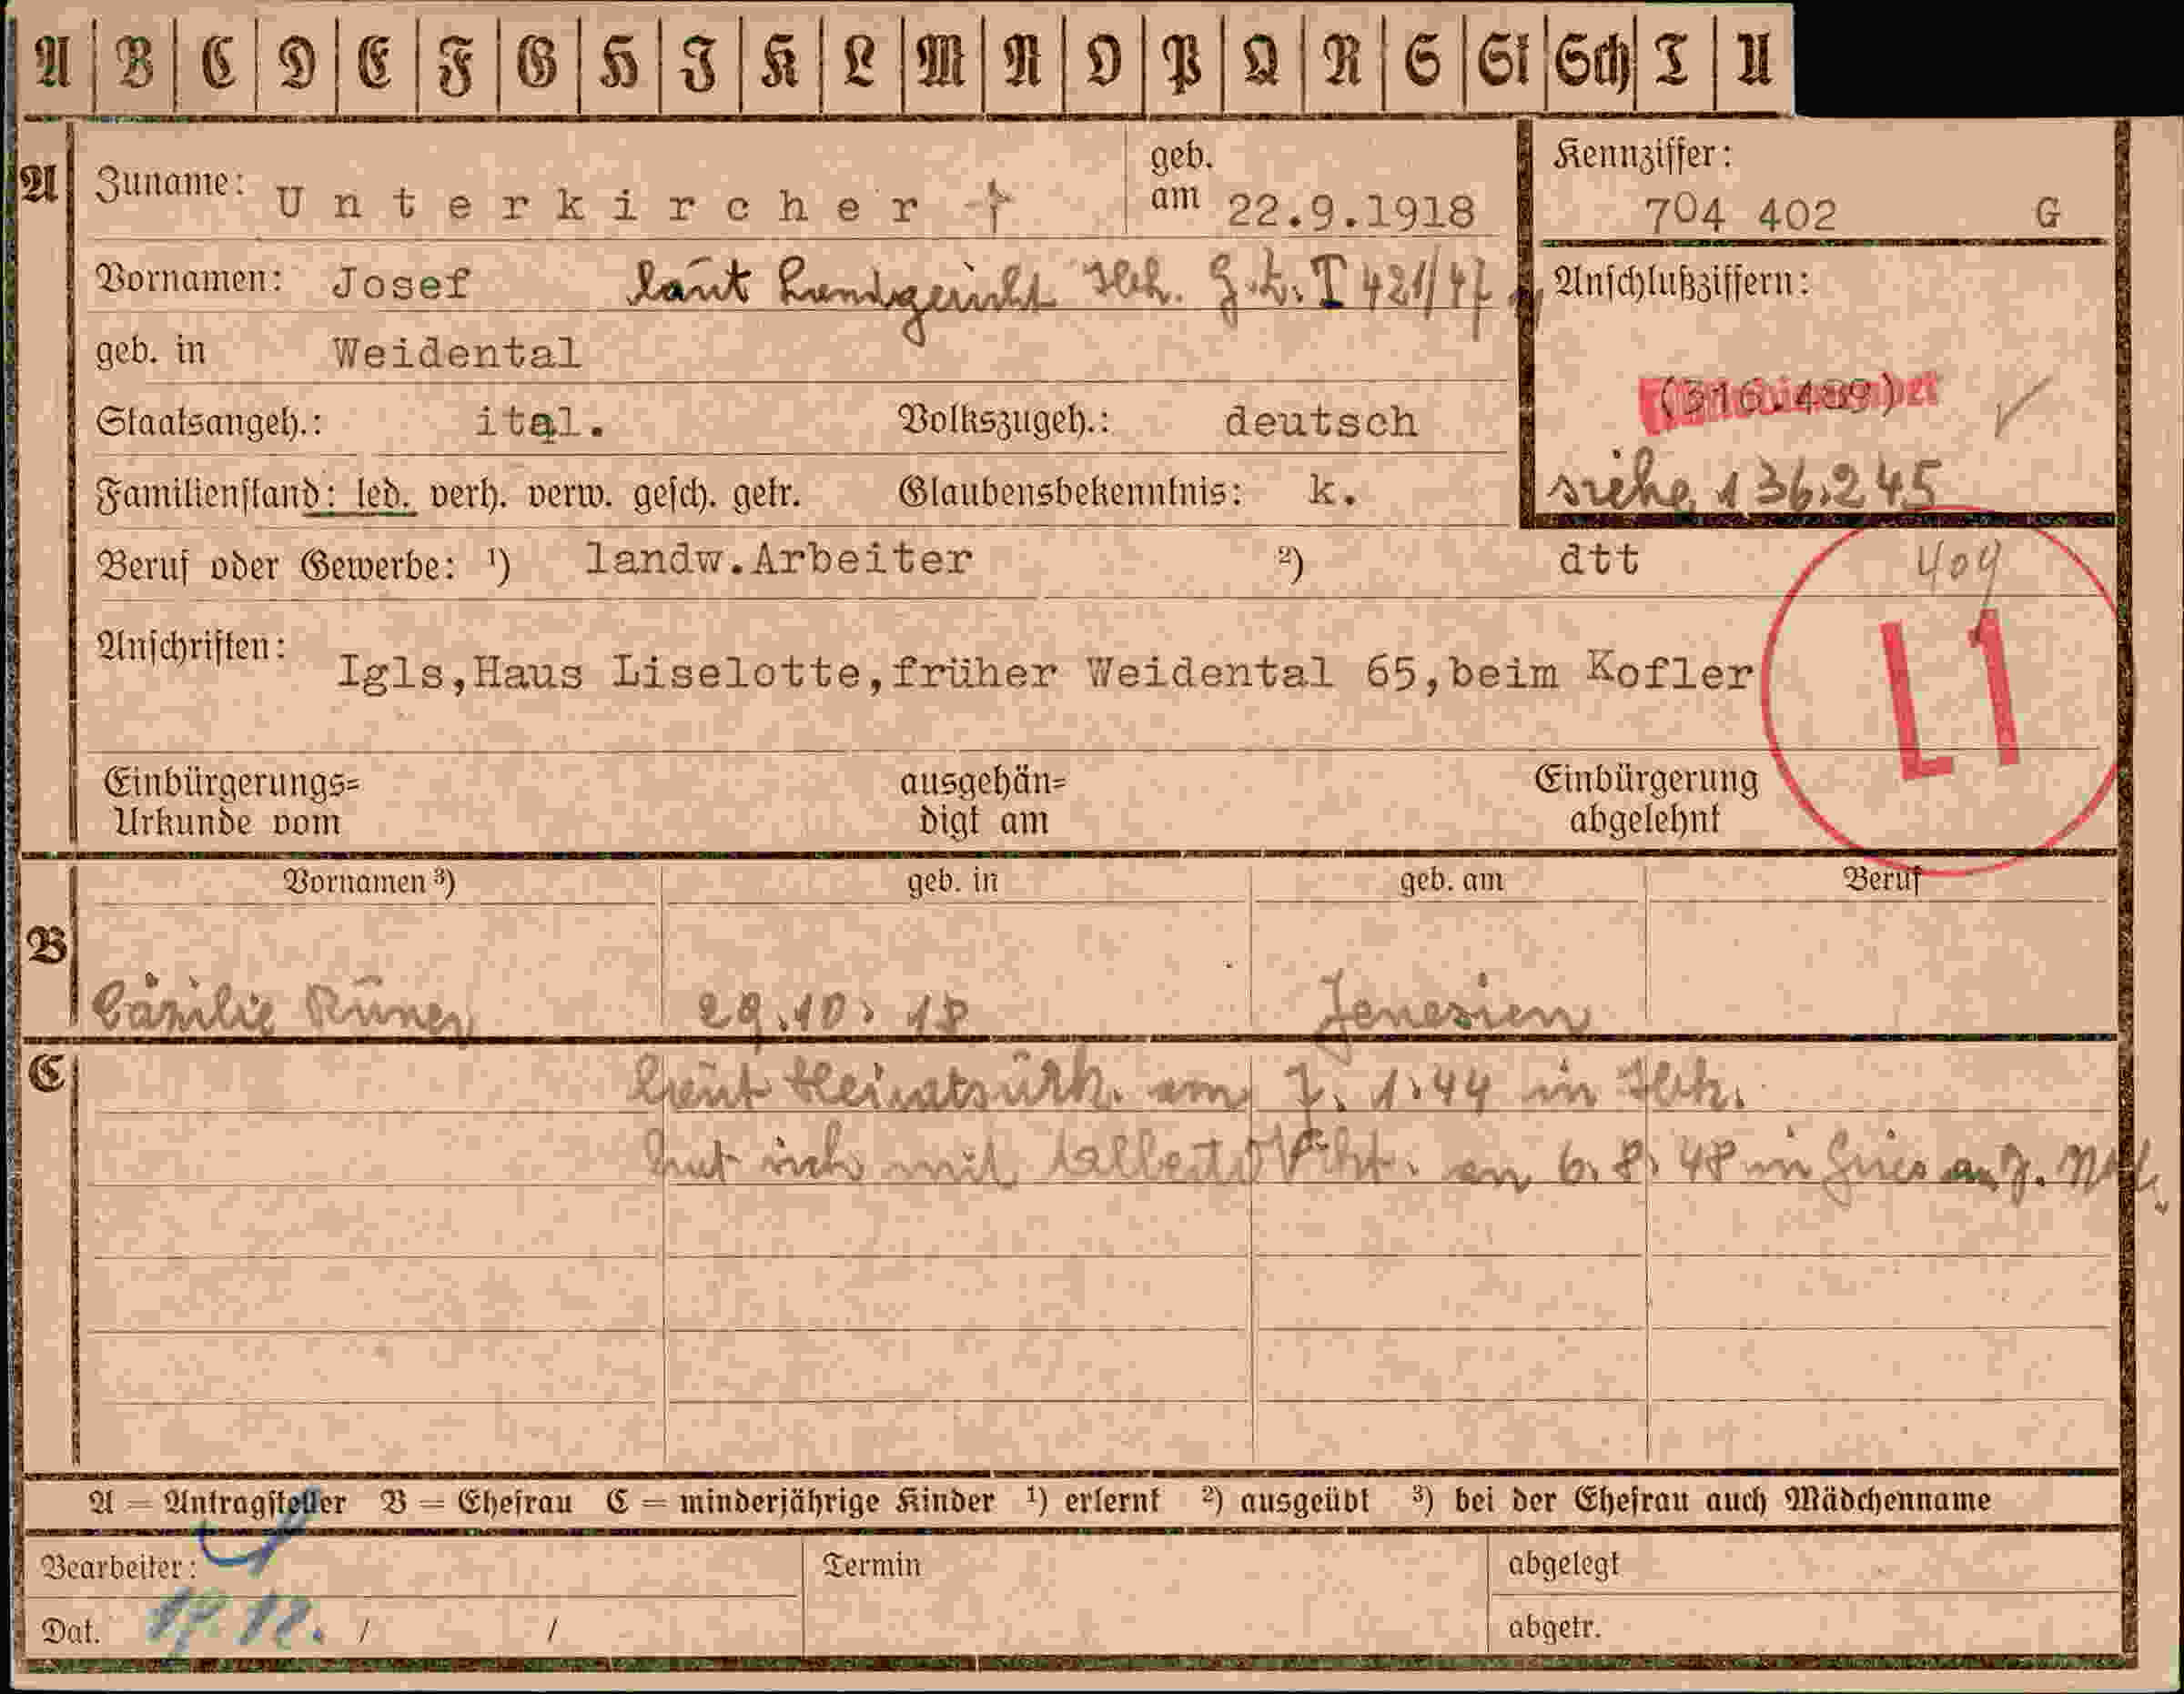 A B C D E F G H I K L M N O P Q R S St Sch T U
A Zuname: Unterkircher † geb. am 22.9.1918
Kennziffer: 704 402 G
Vornamen: Josef laut Landgericht Ibk. G.Z. T 421/47
Anschlußziffern:
geb. in Weidental
(316.489)
Staatsangeh.: ital. Volkszugeh.: deutsch
siehe 136.245
Familienstand: led. verh. verw. gesch. getr. Glaubensbekenntnis: k.
Beruf oder Gewerbe: ¹) landw.Arbeiter ²) dtt
409
L1
Anschriften: Igls,Haus Liselotte,früher Weidental 65,beim Kofler
Einbürgerungs=
Urkunde vom
ausgehän=
digt am
Einbürgerung
abgelehnt
Vornamen ³) geb. in geb. am Beruf
B
Cäzilie 29.10.18 Jenesien
C
laut Heiratsurk. am 7.1.44 in Ibk.
hat sich mit am 6.8.48 in Gries
A = Antragsteller B = Ehefrau C = minderjährige Kinder ¹) erlernt ²) ausgeübt ³) bei der Ehefrau auch Mädchenname
Bearbeiter: Termin abgelegt
Dat. 12. / / abgetr.